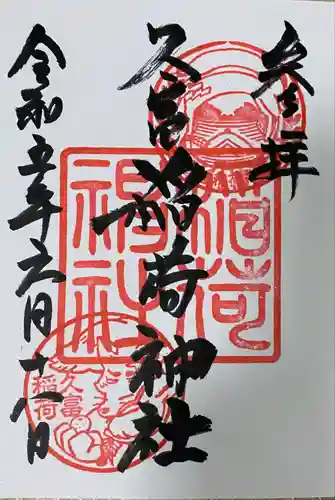 奉拝
久富稲荷神社
令和五年六月十八日
稲荷神社
久富稲荷